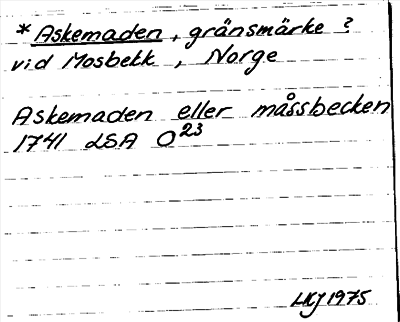 *Askemaden, gränsmärke?
vid Mosbekk, Norge
Askemaden eller måssbecken
1741 LSA O23
LKJ 1975